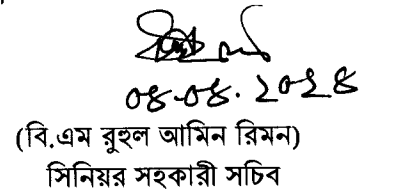 ০৪.০৪.২০২৪
(বি.এম রুহুল আমিন রিমন)
সিনিয়র সহকারী সচিব